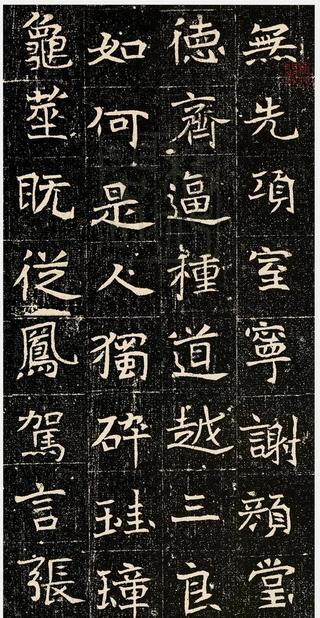 無先項室寧謝顏堂
德齊逼種道越三良
如何是人獨碎珪璋
龜筮既從鳳駕言張